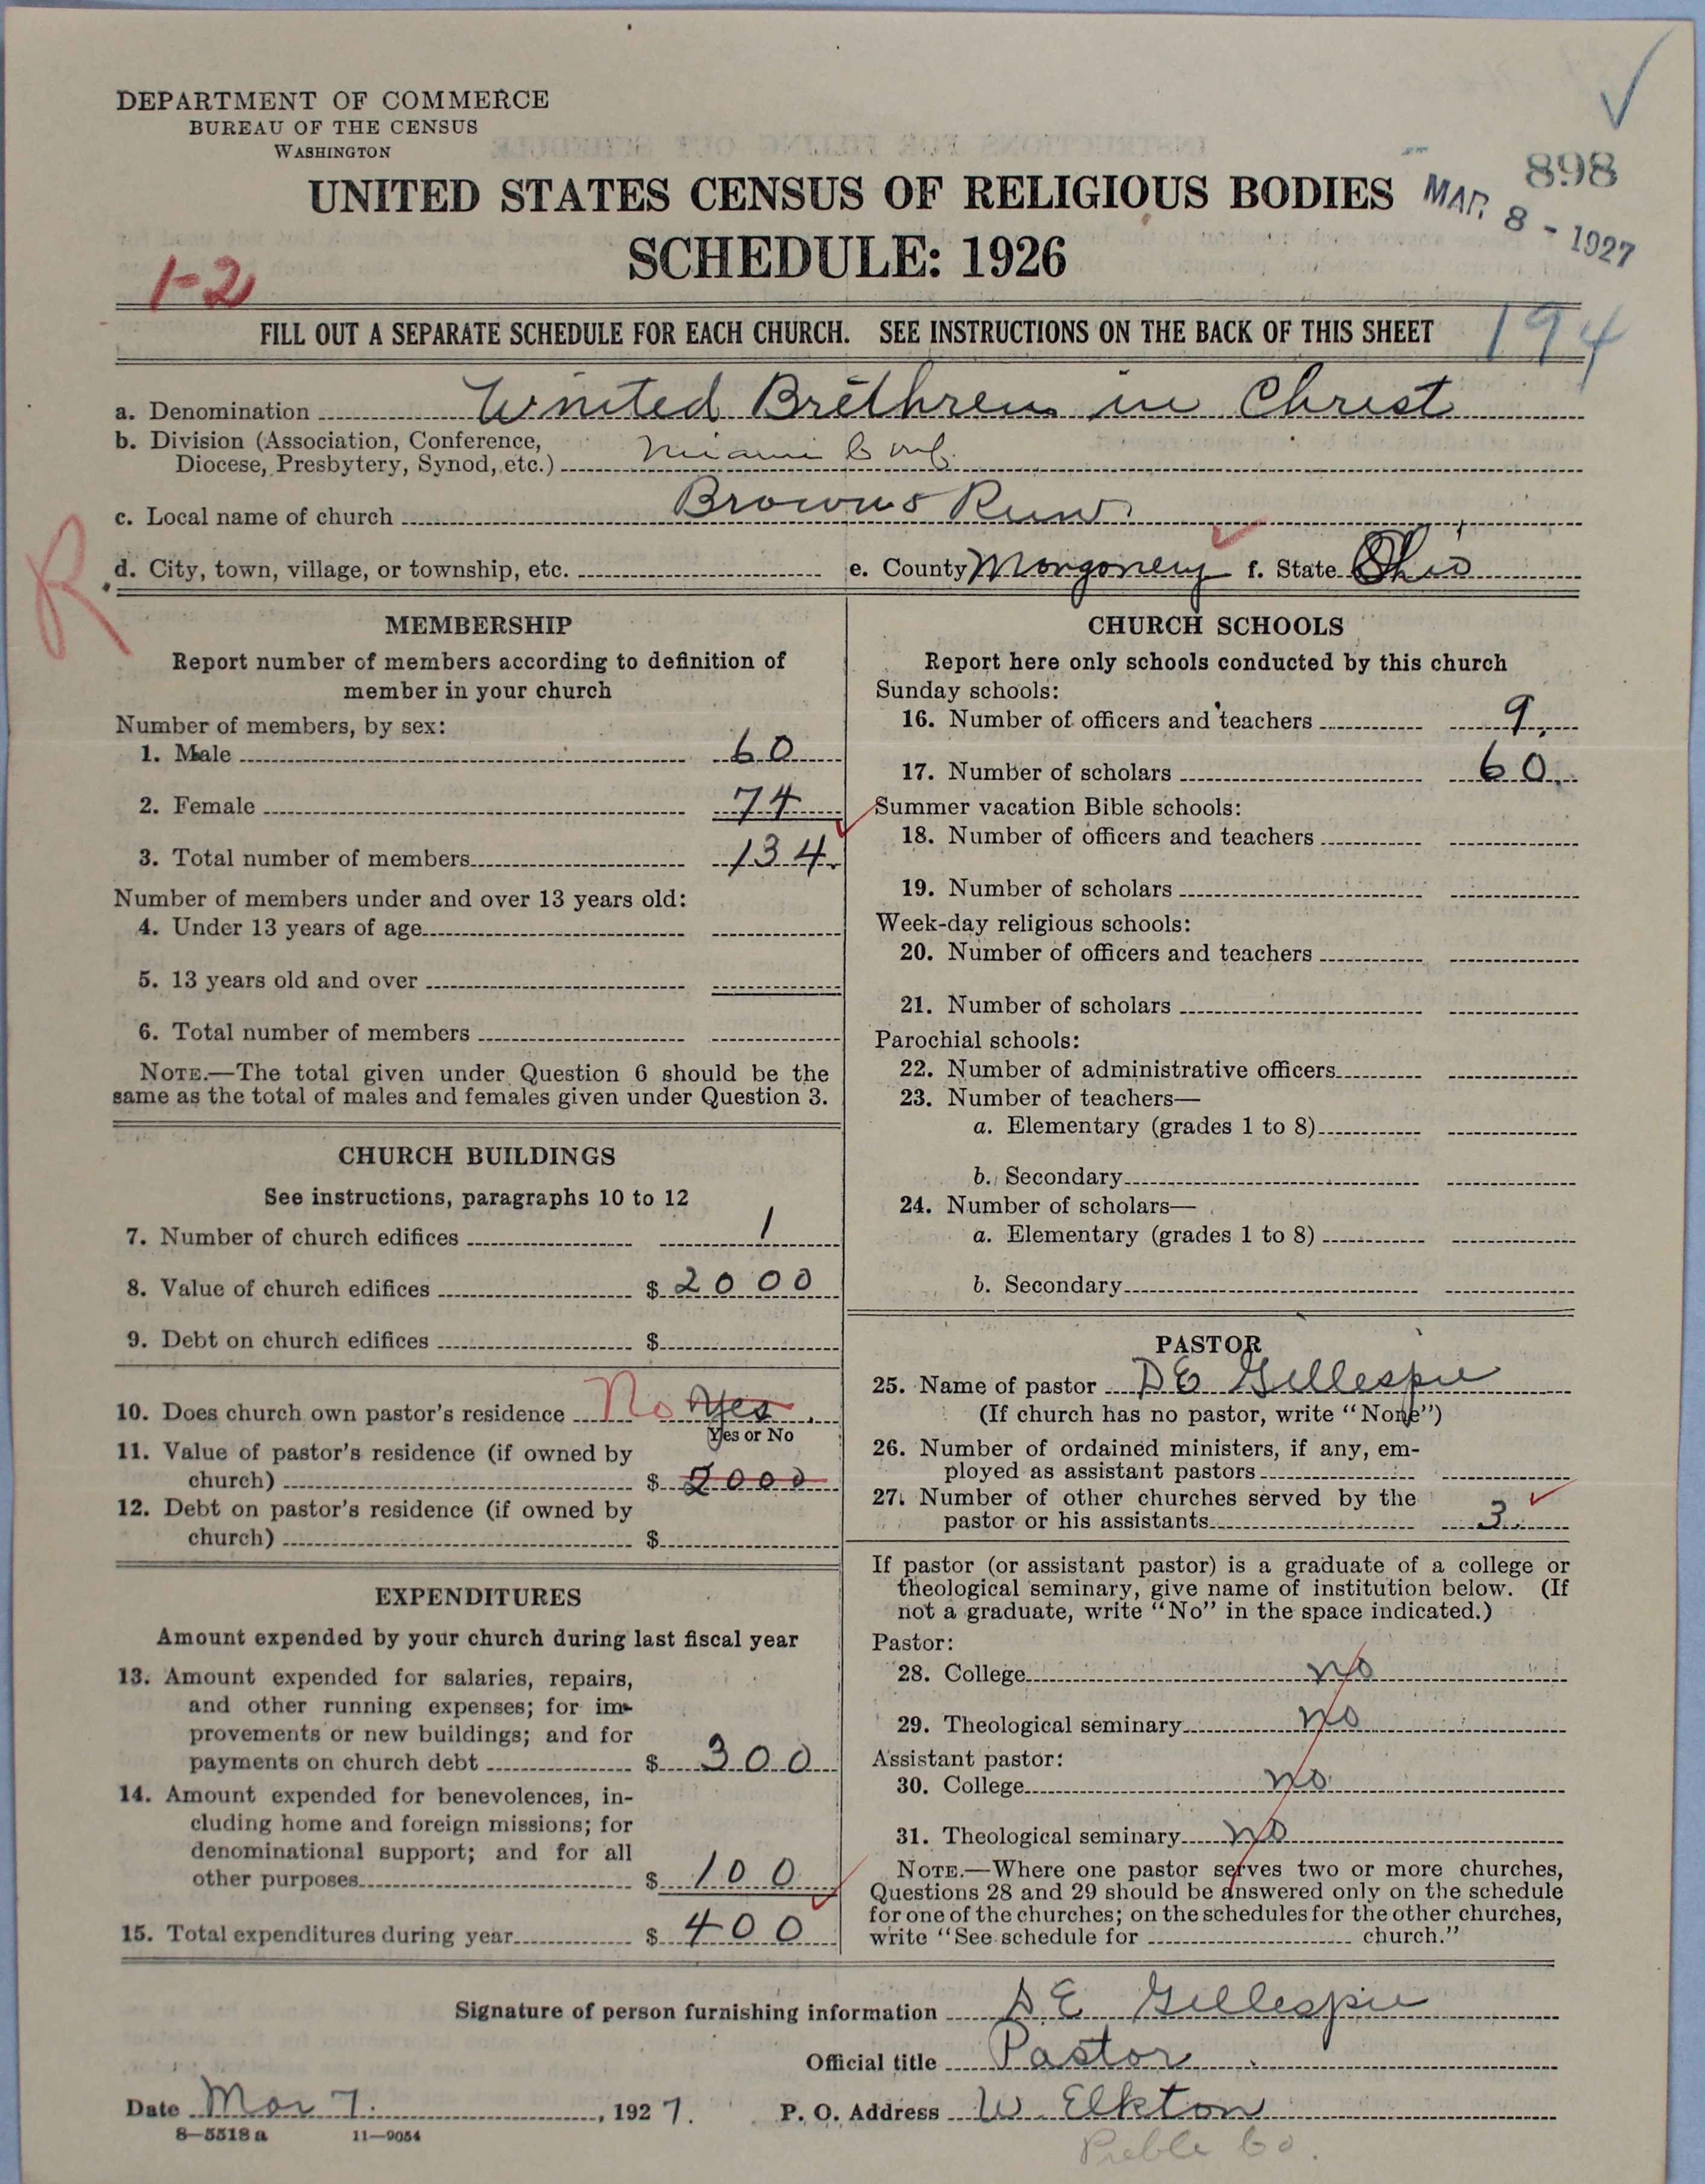 DEPARTMENT OF COMMERCE
BUREAU OF THE CENSUS
WASHINGTON
898
UNITED STATES CENSUS OF RELIGIOUS BODIES
MAR 8 - 1927
SCHEDULE: 1926
1-2
FILL OUT A SEPARATE SCHEDULE FOR EACH CHURCH. SEE INSTRUCTIONS ON THE BACK OF THIS SHEET
194
a. Denomination United Brethren in Christ
b. Division (Association, Conference,
Diocese, Presbytery, Synod, etc.) Miami Conf.
c. Local name of church Browns Run
R
d. City, town, village, or township, etc. e. County Mongomery f. State Ohio
MEMBERSHIP
Report number of members according to definition of
member in your church
Number of members, by sex:
1. Male 60
2. Female 74
3. Total number of members 134
Number of members under and over 13 years old:
4. Under 13 years of age
5. 13 years old and over
6. Total number of members
NOTE.—The total given under Question 6 should be the
same as the total of males and females given under Question 3.
CHURCH BUILDINGS
See instructions, paragraphs 10 to 12
7. Number of church edifices 1
8. Value of church edifices $ 2000
9. Debt on church edifices $
10. Does church own pastor's residence No Yes
Yes or No
11. Value of pastor's residence (if owned by
church) $ 2000
12. Debt on pastor's residence (if owned by
church) $
EXPENDITURES
Amount expended by your church during last fiscal year
13. Amount expended for salaries, repairs,
and other running expenses; for im-
provements or new buildings; and for
payments on church debt $ 300
14. Amount expended for benevolences, in-
cluding home and foreign missions; for
denominational support; and for all
other purposes $ 100
15. Total expenditures during year $ 400
CHURCH SCHOOLS
Report here only schools conducted by this church
Sunday schools:
16. Number of officers and teachers 9
17. Number of scholars 60
Summer vacation Bible schools:
18. Number of officers and teachers
19. Number of scholars
Week-day religious schools:
20. Number of officers and teachers
21. Number of scholars
Parochial schools:
22. Number of administrative officers
23. Number of teachers—
a. Elementary (grades 1 to 8)
b. Secondary
24. Number of scholars—
a. Elementary (grades 1 to 8)
b. Secondary
PASTOR
25. Name of pastor D E Gillespie
(If church has no pastor, write "None")
26. Number of ordained ministers, if any, em-
ployed as assistant pastors
27. Number of other churches served by the
pastor or his assistants 3
If pastor (or assistant pastor) is a graduate of a college or
theological seminary, give name of institution below. (If
not a graduate, write "No" in the space indicated.)
Pastor:
28. College no
29. Theological seminary no
Assistant pastor:
30. College no
31. Theological seminary no
NOTE.—Where one pastor serves two or more churches,
Questions 28 and 29 should be answered only on the schedule
for one of the churches; on the schedules for the other churches,
write "See schedule for church."
Signature of person furnishing information D E Gillespie
Official title Pastor
Date Mar 7. , 1927. P. O. Address W. Elkton
8—5518 a 11—9054
Preble Co.